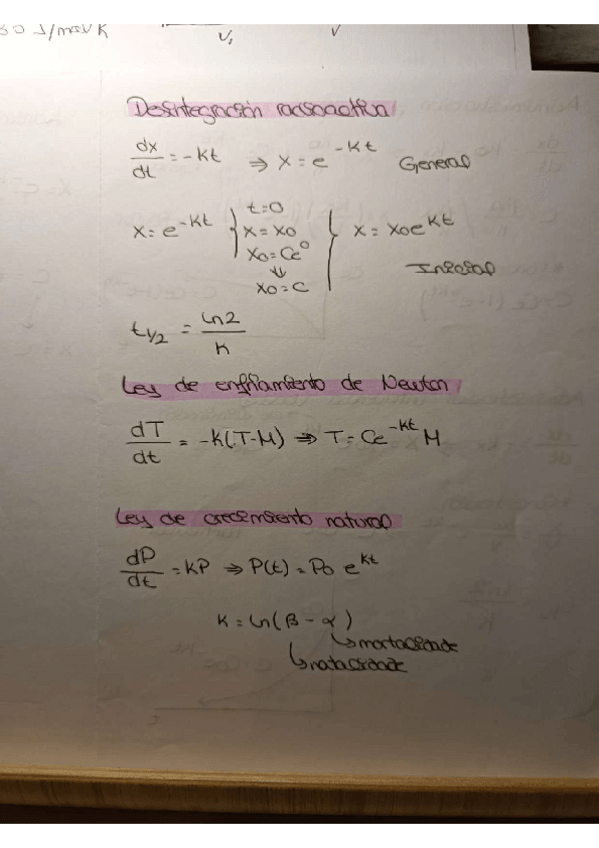 30 J/molK
V₁ V
Desintegración radioactiva
dx/dt = -Kt ⇒ x = e^-Kt General
x = e^-Kt } t=0 { x = x₀e^Kt
x = x₀
x₀ = Ce⁰ Inicial
⇓
x₀ = C
t₁/₂ = ln2/K
Ley de enfriamiento de Newton
dT/dt = -K(T-M) ⇒ T = Ce^-Kt M
Ley de crecimiento natural
dP/dt = KP ⇒ P(t) = P₀ e^Kt
K = ln(β - α)
↳ mortalidade
↳ natalidade